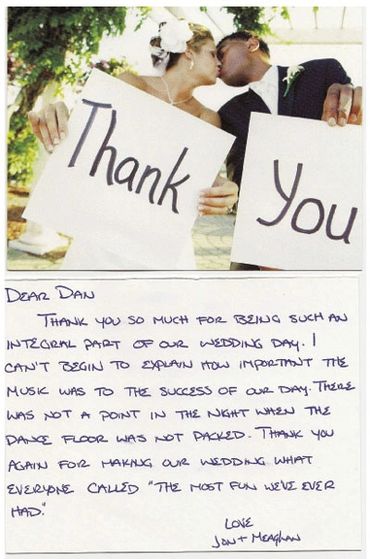 Thank
You
DEAR DAN
THANK YOU SO MUCH FOR BEING SUCH AN
INTEGRAL PART OF OUR WEDDING DAY. I
CAN'T BEGIN TO EXPLAIN HOW IMPORTANT THE
MUSIC WAS TO THE SUCCESS OF OUR DAY. THERE
WAS NOT A POINT IN THE NIGHT WHEN THE
DANCE FLOOR WAS NOT PACKED. THANK YOU
AGAIN FOR MAKING OUR WEDDING WHAT
EVERYONE CALLED "THE MOST FUN WE'VE EVER
HAD."
LOVE
JON + MEAGHAN